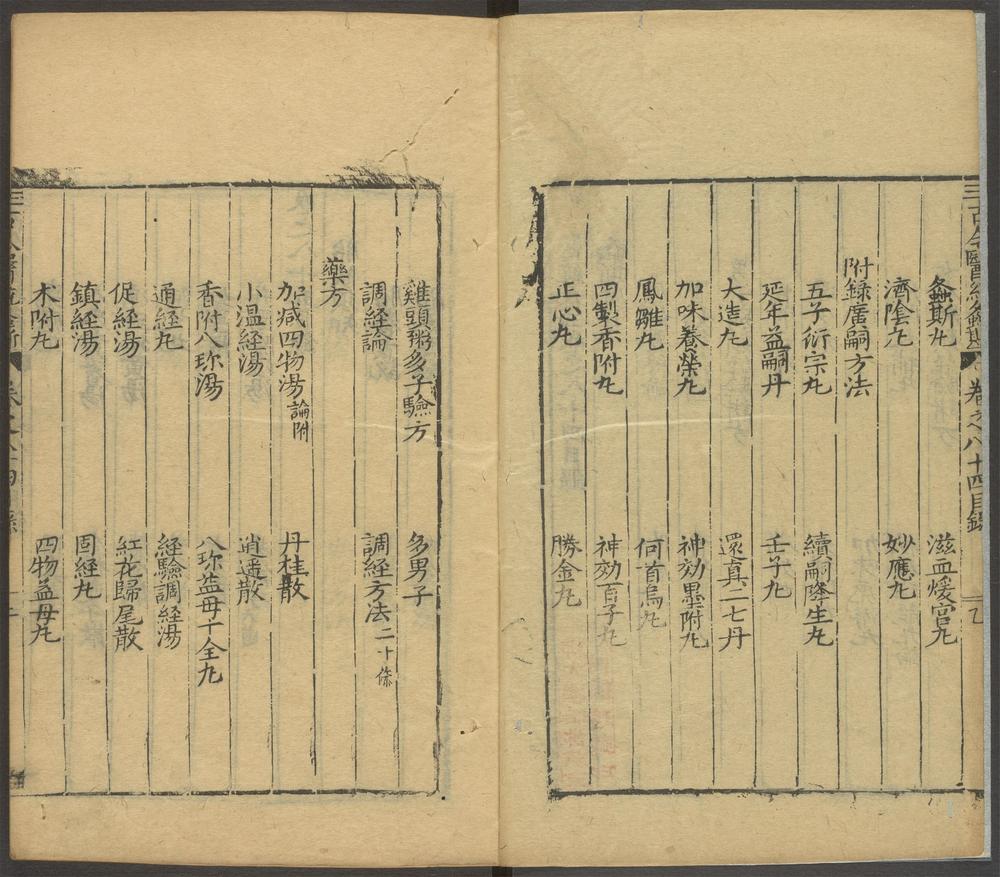 古今醫統 卷之八十四目錄
螽斯丸 滋血煖宮丸
濟陰丸 妙應丸
附錄廣嗣方法
五子衍宗丸 續嗣降生丸
延年益嗣丹 壬子丸
大造丸 還真二七丹
加味養榮丸 神効墨附丸
鳳雛丸 何首烏丸
四製香附丸 神効百子丸
正心丸 勝金丸
雞頭粥多子驗方 多男子
調經論 調經方法二十條
藥方
加減四物湯論附 丹桂散
小温經湯 逍遥散
香附八珎湯 八珎益母十全丸
通經丸 經驗調經湯
促經湯 紅花歸尾散
鎮經湯 固經丸
术附丸 四物益母丸